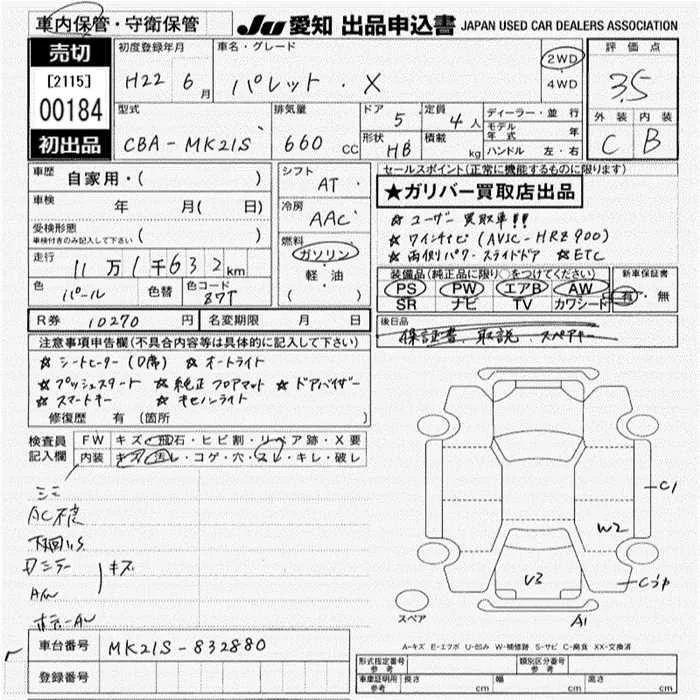 車内保管・守衛保管
JU 愛知 出品申込書 JAPAN USED CAR DEALERS ASSOCIATION
売切
[2115]
00184
初出品
初度登録年月
H22 6月
車名・グレード
パレット・X
2WD
・
4WD
評価点
3.5
外装 内装
C B
型式
CBA-MK21S
排気量
660 CC
ドア 5
定員 4人
形状 HB
積載 kg
ディーラー・並行
モデル年式 年
ハンドル 左・右
車歴 自家用・( )
車検 年 月( 日)
受検形態
車検付きのみ記入して下さい ( )
走行 11万1千632km
色 パール 色替 色コード 87T
シフト AT
冷房 AAC
燃料
ガソリン
・
軽・油
( )
セールスポイント(正常に機能するものに限ります)
★ガリバー買取店出品
☆ ユーザー買取車!!
☆ ワイドナビ(AVIC-HRZ900)
☆ 両側パワースライドドア ☆ETC
装備品(純正品に限り○をつけてください)
PS PW エアB AW
SR ナビ TV カワシート
新車保証書
有・無
R券 10270円 名変期限 月 日
後日品
保証書、取説、スペアキー
注意事項申告欄(不具合内容等は具体的に記入して下さい)
☆ シートヒーター(D席) ☆ オートライト
☆ プッシュスタート ☆ 純正フロアマット ☆ ドアバイザー
☆ スマートキー ☆ キセノンライト
修復歴 有 (箇所 )
検査員記入欄
FW キズ・飛石・ヒビ割・リペア跡・X要
内装 キズ・汚レ・コゲ・穴・スレ・キレ・破レ
シミ
AC不良
下廻りS
ミラー キズ
AW
C1
W2
U3
A1
スペア
A-キズ E-エクボ U-凹み W-補修跡 S-サビ C-腐食 XX-交換済
車台番号 MK21S-832880
登録番号
形式指定番号 参考 類別区分番号 参考
車庫証明用 参考 長さ cm 幅 cm 高さ cm